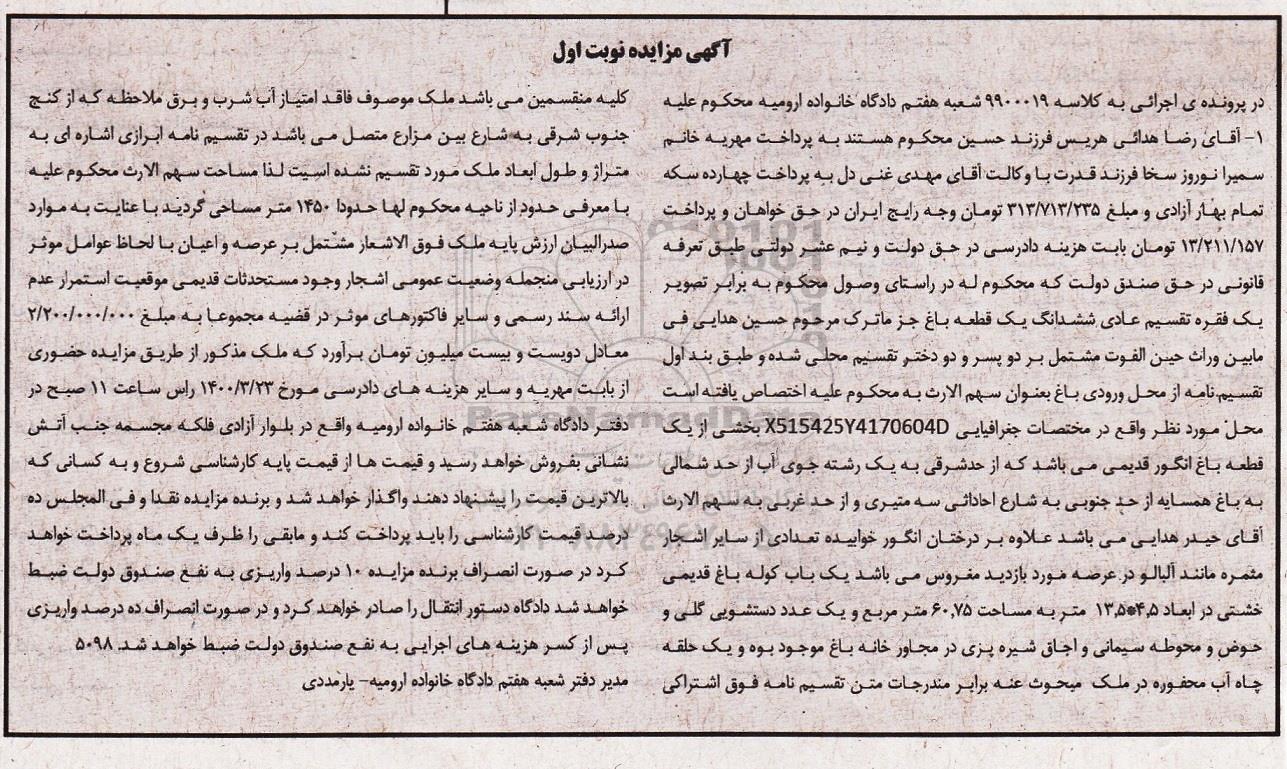 آگهی مزایده نوبت اول
در پرونده ی اجرائی به کلاسه ۹۹۰۰۰۱۹ شعبه هفتم دادگاه خانواده ارومیه محکوم علیه
۱- آقای رضا هدائی هریس فرزند حسین محکوم هستند به پرداخت مهریه خانم
سمیرا نوروز سخا فرزند قدرت با وکالت آقای مهدی غنی دل به پرداخت چهارده سکه
تمام بهار آزادی و مبلغ ۳۱۳/۷۱۳/۲۳۵ تومان وجه رایج ایران در حق خواهان و پرداخت
۱۳/۲۱۱/۱۵۷ تومان بابت هزینه دادرسی در حق دولت و نیم عشر دولتی طبق تعرفه
قانونی در حق صندق دولت که محکوم له در راستای وصول محکوم به برابر تصویر
یک فقره تقسیم عادی ششدانگ یک قطعه باغ جز ماترک مرحوم حسین هدایی فی
مابین وراث حین الفوت مشتمل بر دو پسر و دو دختر تقسیم محلی شده و طبق بند اول
تقسیم نامه از محل ورودی باغ بعنوان سهم الارث به محکوم علیه اختصاص یافته است
محل مورد نظر واقع در مختصات جغرافیایی X515425Y4170604D بخشی از یک
قطعه باغ انگور قدیمی می باشد که از حدشرقی به یک رشته جوی آب از حد شمالی
به باغ همسایه از حد جنوبی به شارع احاداثی سه متیری و از حد غربی به سهم الارث
آقای حیدر هدایی می باشد علاوه بر درختان انگور خوابیده تعدادی از سایر اشجار
مثمره مانند آلبالو در عرصه مورد بازدید مغروس می باشد یک باب کوله باغ قدیمی
خشتی در ابعاد ۴٫۵*۱۳٫۵ متر به مساحت ۶۰٫۷۵ متر مربع و یک عدد دستشویی گلی و
حوض و محوطه سیمانی و اجاق شیره پزی در مجاور خانه باغ موجود بوه و یک حلقه
چاه آب محفوره در ملک مبحوث عنه برابر مندرجات متن تقسیم نامه فوق اشتراکی
کلیه منقسمین می باشد ملک موصوف فاقد امتیاز آب شرب و برق ملاحظه که از کنج
جنوب شرقی به شارع بین مزارع متصل می باشد در تقسیم نامه ابرازی اشاره ای به
متراژ و طول ابعاد ملک مورد تقسیم نشده اسیت لذا مساحت سهم الارث محکوم علیه
با معرفی حدود از ناحیه محکوم لها حدودا ۱۴۵۰ متر مساحی گردید با عنایت به موارد
صدرالبیان ارزش پایه ملک فوق الاشعار مشتمل بر عرصه و اعیان با لحاظ عوامل موثر
در ارزیابی منجمله وضعیت عمومی اشجار وجود مستحدثات قدیمی موقعیت استمرار عدم
ارائه سند رسمی و سایر فاکتورهای موثر در قضیه مجموعا به مبلغ ۲/۲۰۰/۰۰۰/۰۰۰
معادل دویست و بیست میلیون تومان برآورد که ملک مذکور از طریق مزایده حضوری
از بابت مهریه و سایر هزینه های دادرسی مورخ ۱۴۰۰/۳/۲۳ راس ساعت ۱۱ صبح در
دفتر دادگاه شعبه هفتم خانواده ارومیه واقع در بلوار آزادی فلکه مجسمه جنب آتش
نشانی بفروش خواهد رسید و قیمت ها از قیمت پایه کارشناسی شروع و به کسانی که
بالاترین قیمت را پیشنهاد دهند واگذار خواهد شد و برنده مزایده نقدا و فی المجلس ده
درصد قیمت کارشناسی را باید پرداخت کند و مابقی را ظرف یک ماه پرداخت خواهد
کرد در صورت انصراف برنده مزایده ۱۰ درصد واریزی به نفع صندوق دولت ضبط
خواهد شد دادگاه دستور انتقال را صادر خواهد کرد و در صورت انصراف ده درصد واریزی
پس از کسر هزینه های اجرایی به نفع صندوق دولت ضبط خواهد شد. ۵۰۹۸
مدیر دفتر شعبه هفتم دادگاه خانواده ارومیه- یارمددی
ParsNamadData